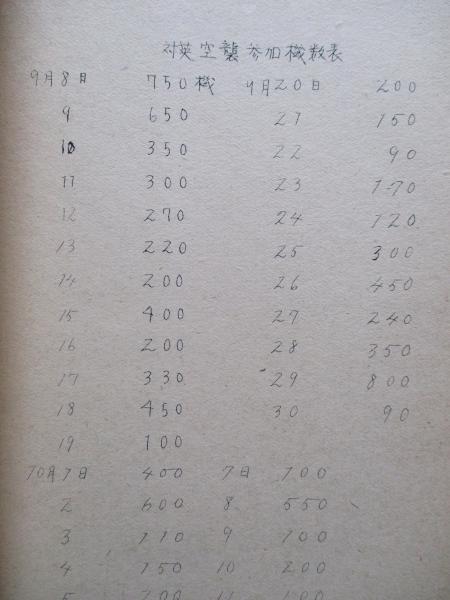 対英空襲参加機数表
9月8日 750機 9月20日 200
9 650 21 150
10 350 22 90
11 300 23 170
12 270 24 120
13 220 25 300
14 200 26 450
15 400 27 240
16 200 28 350
17 330 29 800
18 450 30 90
19 100
10月1日 400 7日 100
2 600 8 550
3 110 9 100
4 150 10 200
5